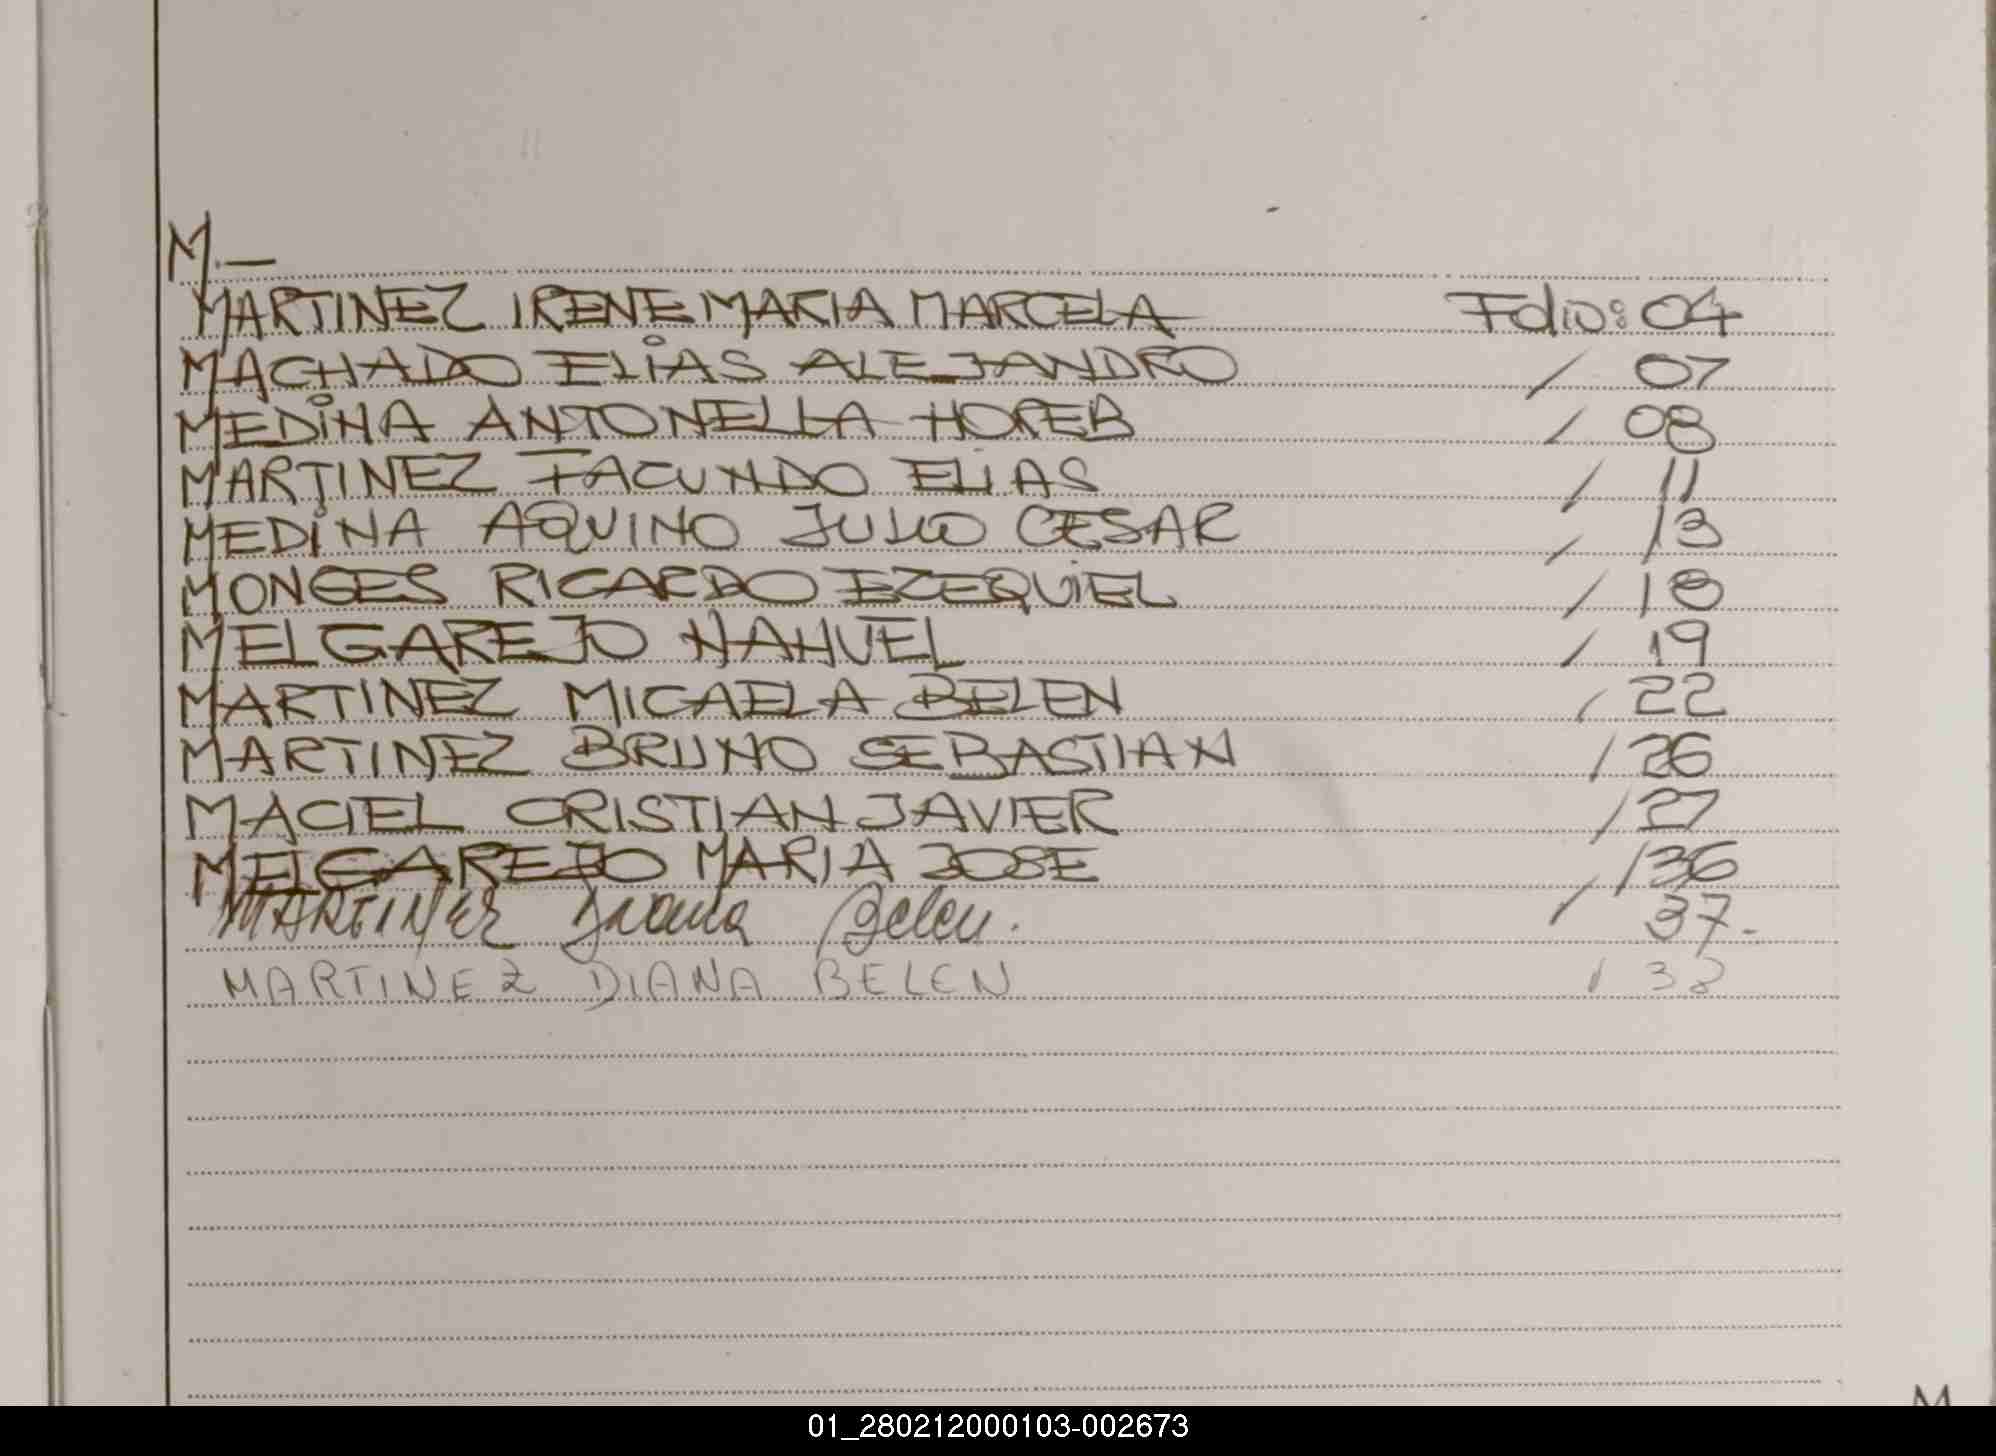 M.—
MARTINEZ IRENE MARIA MARCELA Folio: 04
MACHADO ELIAS ALEJANDRO / 07
MEDINA ANTONELLA HOREB / 08
MARTINEZ FACUNDO ELIAS / 11
MEDINA AQUINO JULIO CESAR / 13
MONGES RICARDO EZEQUIEL / 18
MELGAREJO NAHUEL / 19
MARTINEZ MICAELA BELEN / 22
MARTINEZ BRUNO SEBASTIAN / 26
MACIEL CRISTIAN JAVIER / 27
MELGAREJO MARIA JOSE / 36
MARTINEZ Diana Belen. / 37.-
MARTINEZ DIANA BELEN / 38
M
01_280212000103-002673